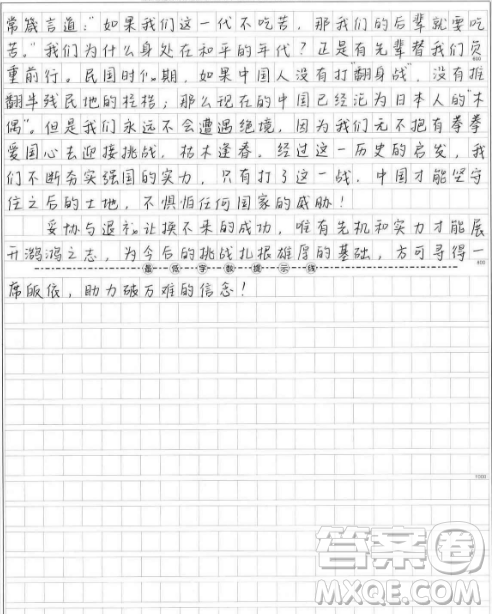 常箴言道:"如果我们这一代不吃苦,那我们的后辈就要吃
苦。"我们为什么身处在和平的年代?正是有先辈替我们负
重前行。民国时期,如果中国人没有打"翻身战",没有推
翻半残民地的桎梏;那么现在的中国已经沦为日本人的"木
偶"。但是我们永远不会遭遇绝境,因为我们无不抱有拳拳
爱国心去迎接挑战,枯木逢春。经过这一历史的启发,我
们不断夯实强国的实力,只有打了这一战,中国才能坚守
住之后的土地,不惧怕任何国家的威胁!
妥协与退让换不来的成功,唯有先机和实力才能展
开鸿鸿之志,为今后的挑战扎根雄厚的基础,方可寻得一
最低字数提示线
席皈依,助力破万难的信念!
1000
答案圈
MXQE.COM